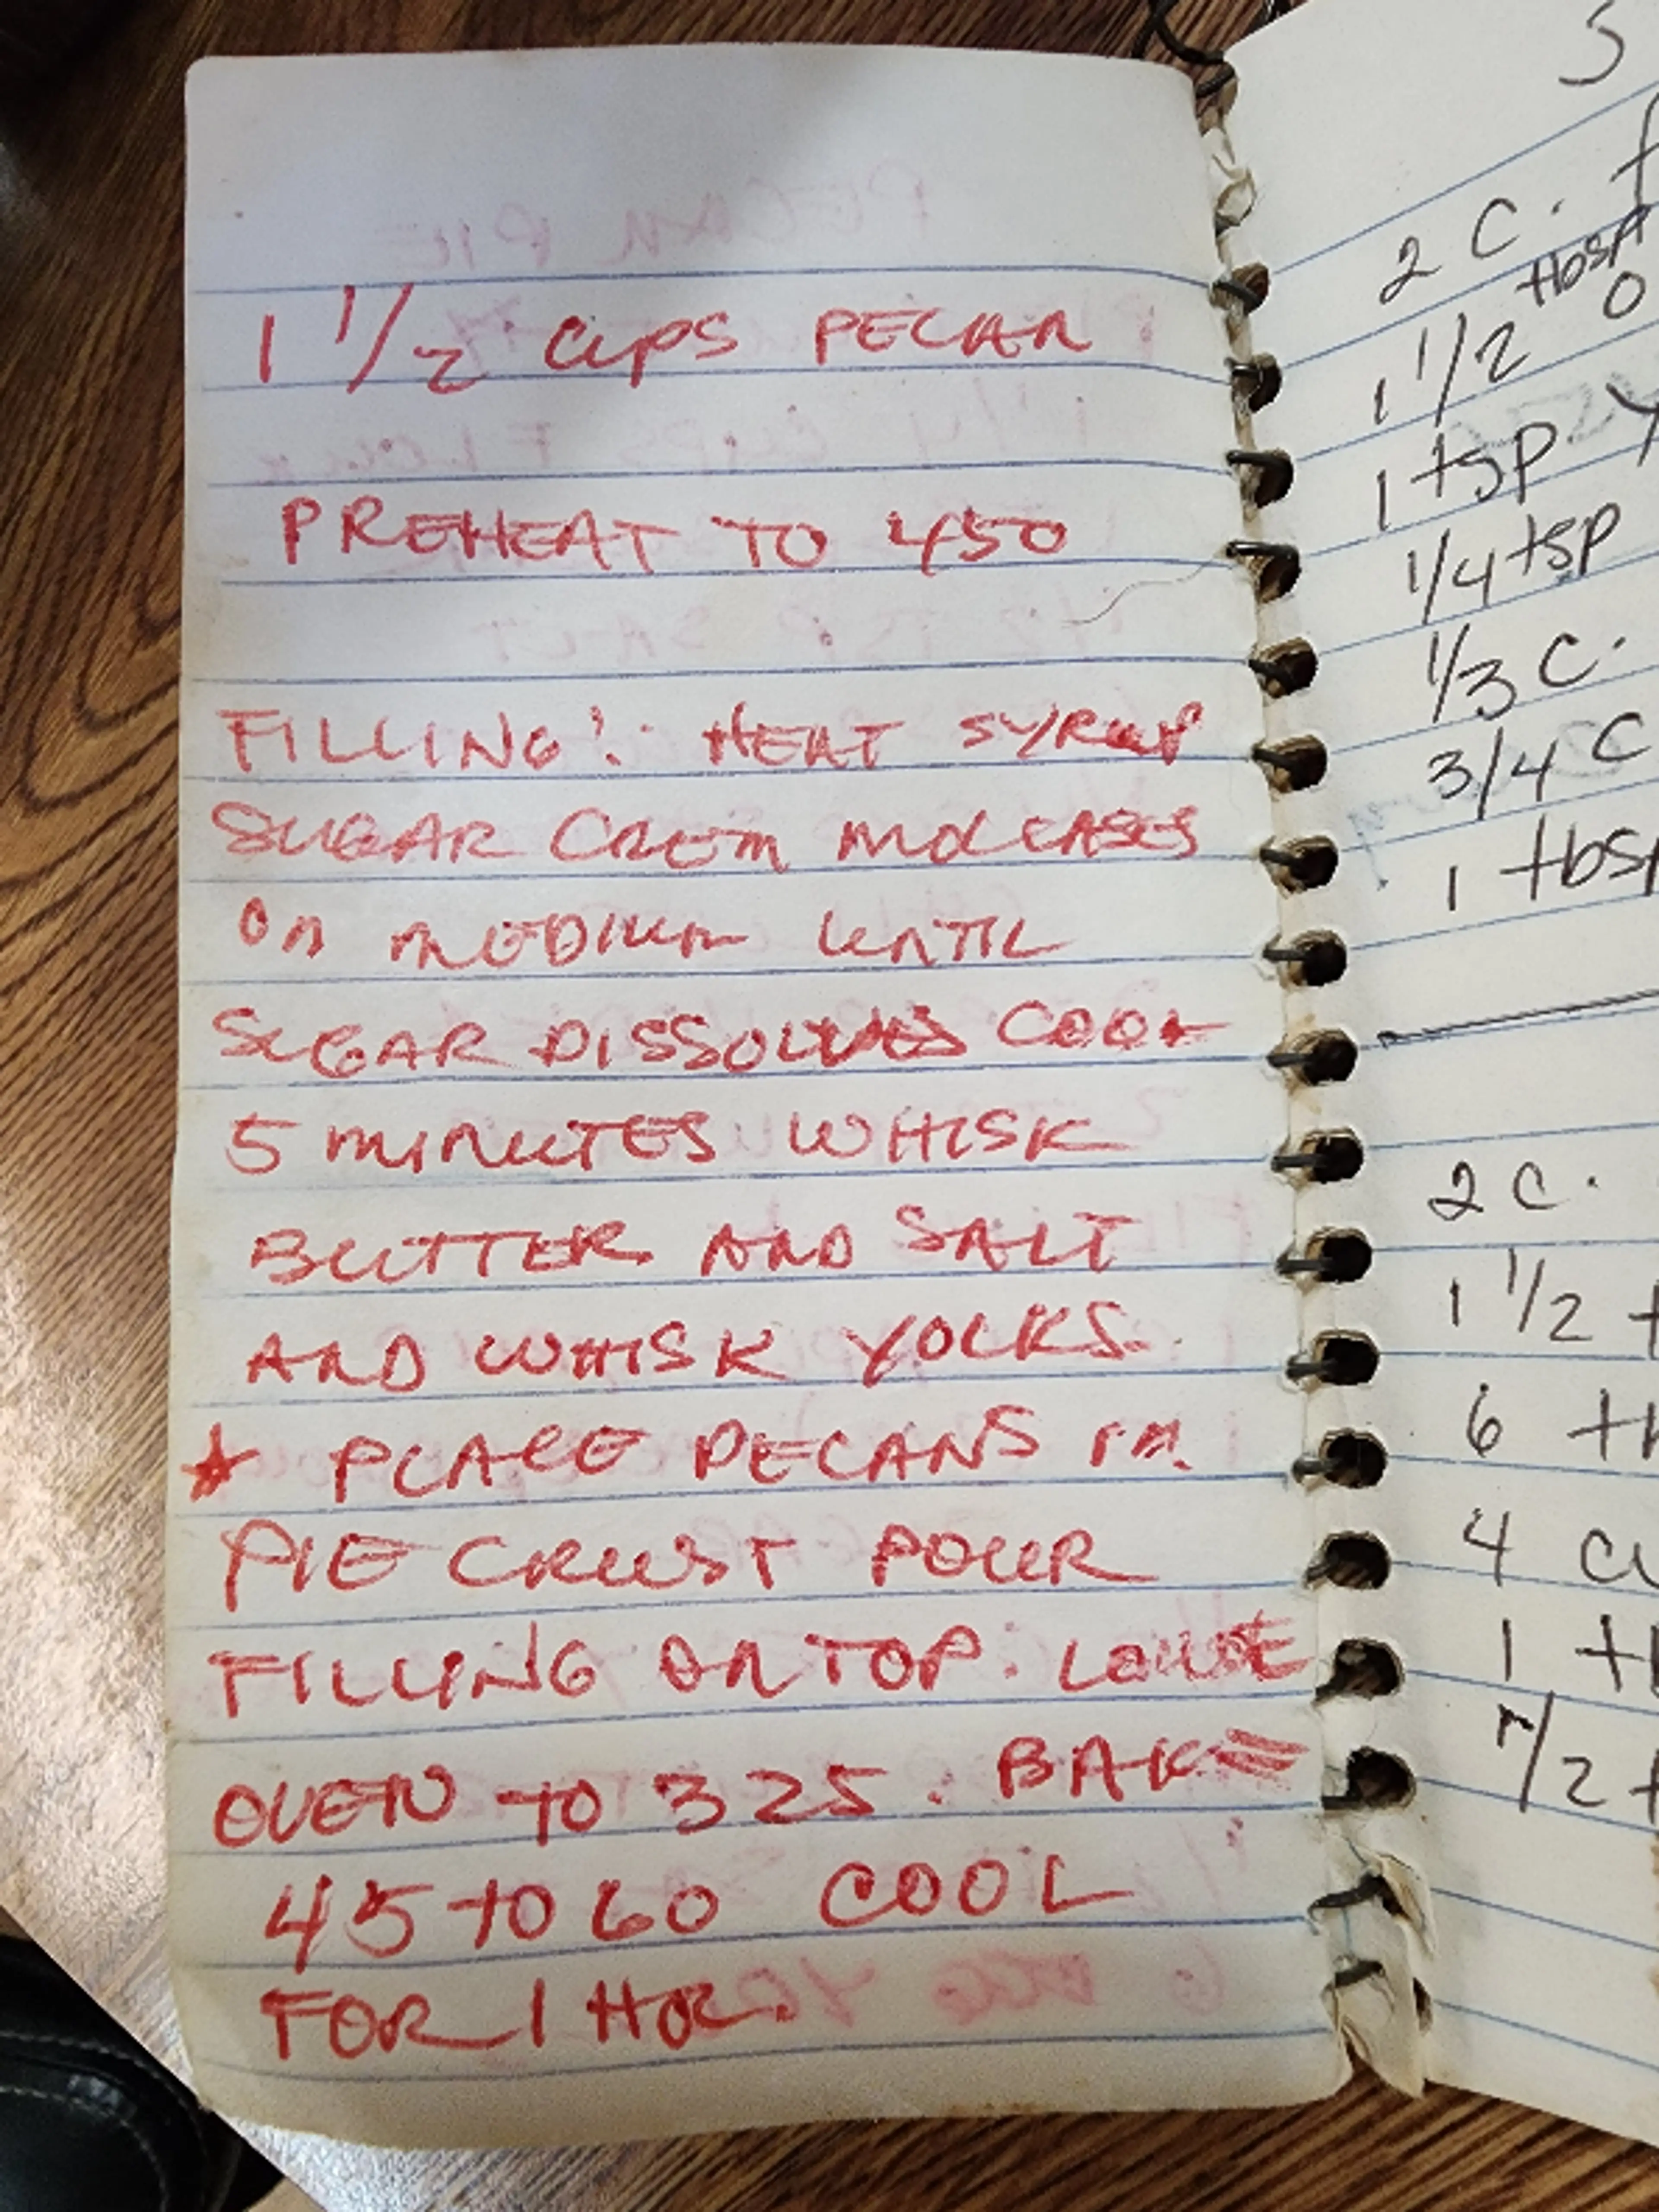 1 1/2 CUPS PECAN
PREHEAT TO 450
FILLING: HEAT SYRUP
SUGAR CREM MOLCASES
ON MEDIUM UNTIL
SUGAR DISSOLVES COOK
5 MINUTES WHISK
BUTTER AND SALT
AND WHISK YOLKS.
* PLACE PECANS IN
PIE CRUST POUR
FILLING ON TOP. LOWE
OVEN TO 325. BAKE
45 TO 60 COOL
FOR 1 HOR.
2 C. f
tbsp
1 1/2 O
1 tsp y
1/4 tsp
1/3 C.
3/4 C
1 tbsp
2 C.
1 1/2 t
6
4 cu
1
1/2